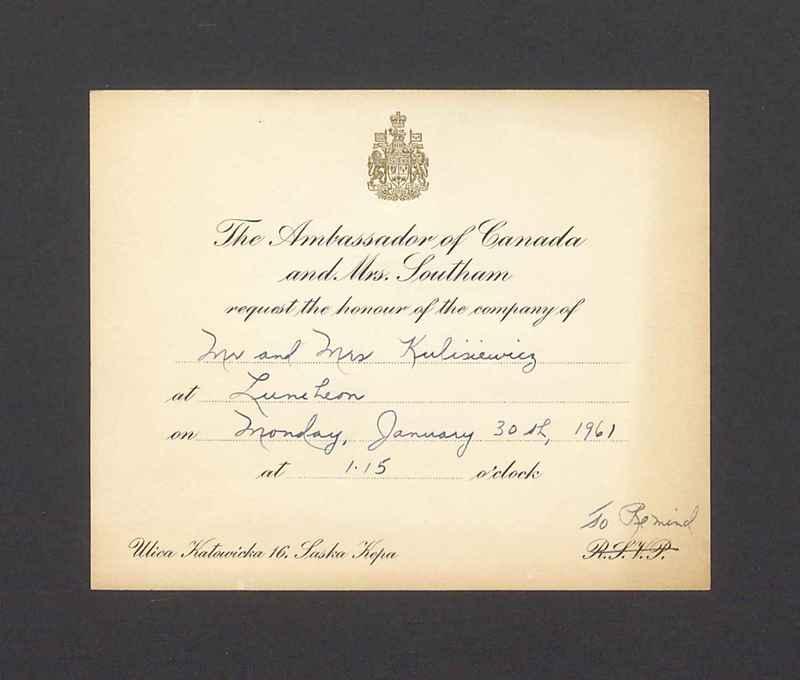 The Ambassador of Canada
and Mrs. Southam
request the honour of the company of
Mr and Mrs Kulisiewicz
at Luncheon
on Monday, January 30th, 1961
at 1.15 o'clock
To Remind
Ulica Katowicka 16, Saska Kepa R.S.V.P.